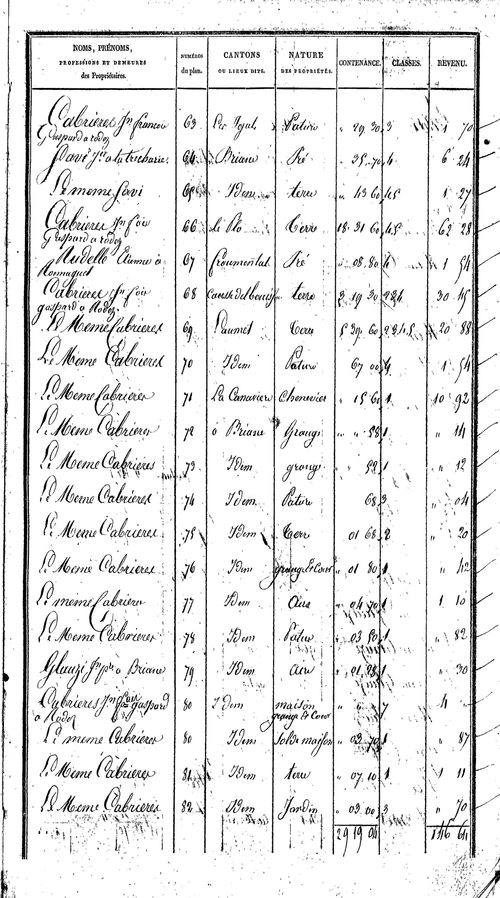 NOMS, PRÉNOMS, PROFESSIONS ET DEMEURES des Propriétaires. NUMÉROS du plan. CANTONS OU LIEUX DITS. NATURE DES PROPRIÉTÉS. CONTENANCE. CLASSES. REVENU.
Cabrieres Jn francois 63 Pature " 29 30 3 " 1 70
Gaspard a rodez
64 Briane Pré " 35 70 4 6 24
Le meme 65 Idem terre " 43 60 4.5 1 27
Cabrieres Jn fois 66 le Terre 18 31 60 4.5 62 28
Gaspard a rodez
Nudelle Etienne a 67 froumental Pré " 08 80 4 " 1 54
Cabrieres Jn fois 68 terre 3 19 30 2.3.4 30 45
gaspard a Rodez
Le Meme Cabrieres 69 Paumet Terre 5 39 60 2.3.4.5 20 88
Le Meme Cabrieres 70 Idem Pature 67 00 4 1 54
Le Meme Cabrieres 71 La Canaviere Chenevier " 15 60 1 10 92
Le Meme Cabrieres 72 a Briane Grange " " 58 1 " 14
Le Meme Cabrieres 73 Idem grange " " 52 1 " 12
Le Meme Cabrieres 74 Idem Pature 68 3 " 04
Le Meme Cabrieres 75 Idem Terre 01 68 2 " 20
Le Meme Cabrieres 76 Idem grange & Cour " 01 80 1 " 42
Le meme Cabrieres 77 Idem Aire " 04 70 1 1 10
Le Meme Cabrieres 78 Idem Pature " 03 50 1 " 82
Glauzi a Briane 79 Idem Aire " 01 28 1 " 30
Cabrieres Jn fois gaspard 80 Idem maison " 7 4 "
a Rodez grange & Cour
Le meme Cabrieres 80 Idem Sol de maison " 03 70 1 " 87
Le Meme Cabrieres 81 Idem terre " 07 10 1 1 11
Le Meme Cabrieres 82 Idem Jardin " 03 00 3 " 70
29 19 04 146 64